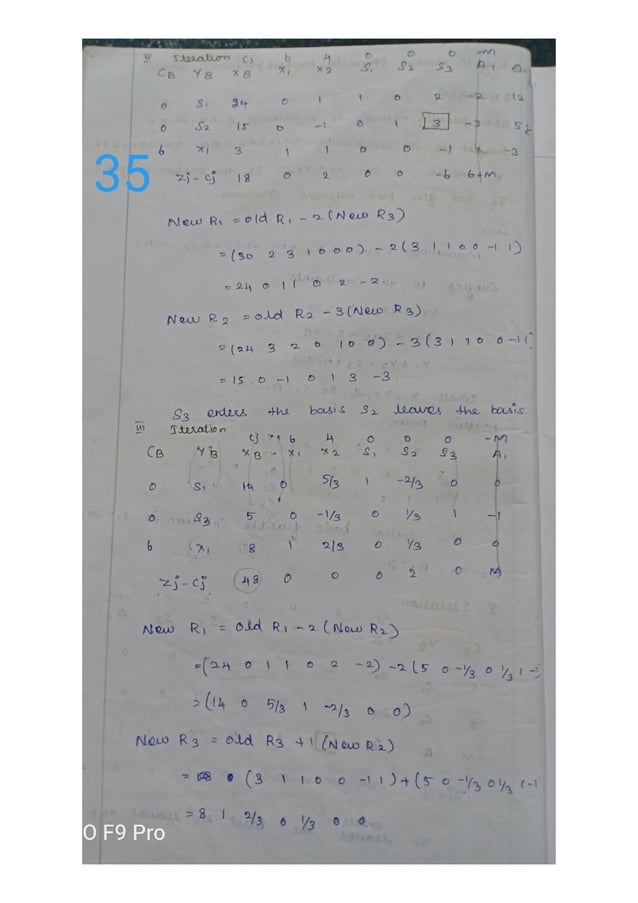 II Iteration Cj 6 4 0 0 0 -M
CB YB XB X1 X2 S1 S2 S3 A1 θ
0 S1 24 0 1 1 0 2 -2 12
0 S2 15 0 -1 0 1 3 -3 5
6 X1 3 1 1 0 0 -1 1 -3
Zj-Cj 18 0 2 0 0 -6 6+M
35
New R1 = old R1 - 2(New R3)
= (30 2 3 1 0 0 0) - 2(3 1 1 0 0 -1 1)
= 24 0 1 1 0 2 -2.
New R2 = old R2 - 3(New R3)
= (24 3 2 0 1 0 0) - 3(3 1 1 0 0 -1 1)
= 15 0 -1 0 1 3 -3.
S3 enters the basis S2 leaves the basis.
III Iteration
Cj 6 4 0 0 0 -M
CB YB XB X1 X2 S1 S2 S3 A1
0 S1 14 0 5/3 1 -2/3 0 0
0 S3 5 0 -1/3 0 1/3 1 -1
6 X1 8 1 2/3 0 1/3 0 0
Zj-Cj 48 0 0 0 2 0 M
New R1 = old R1 - 2(New R2)
= (24 0 1 1 0 2 -2) - 2(5 0 -1/3 0 1/3 1 -1
= (14 0 5/3 1 -2/3 0 0)
New R3 = old R3 + 1(New R2)
= (3 1 1 0 0 -1 1) + (5 0 -1/3 0 1/3 1 -1
= 8 1 2/3 0 1/3 0 0
O F9 Pro